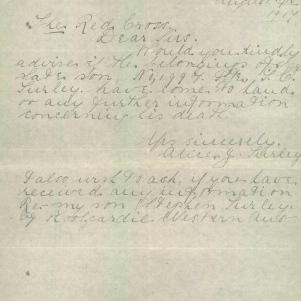 August 9th
1917
The Red Cross.
Dear Sirs.
Would you kindly
advise if the belongings of my
late son, No 1997. Pte, H. C.
Turley. have come to hand
or any further information
concerning his death
Yrs sincerely.
Alice J Turley
I also wish to ask, if you have
received any information
Re- my son Stephen Turley
by Western Aus